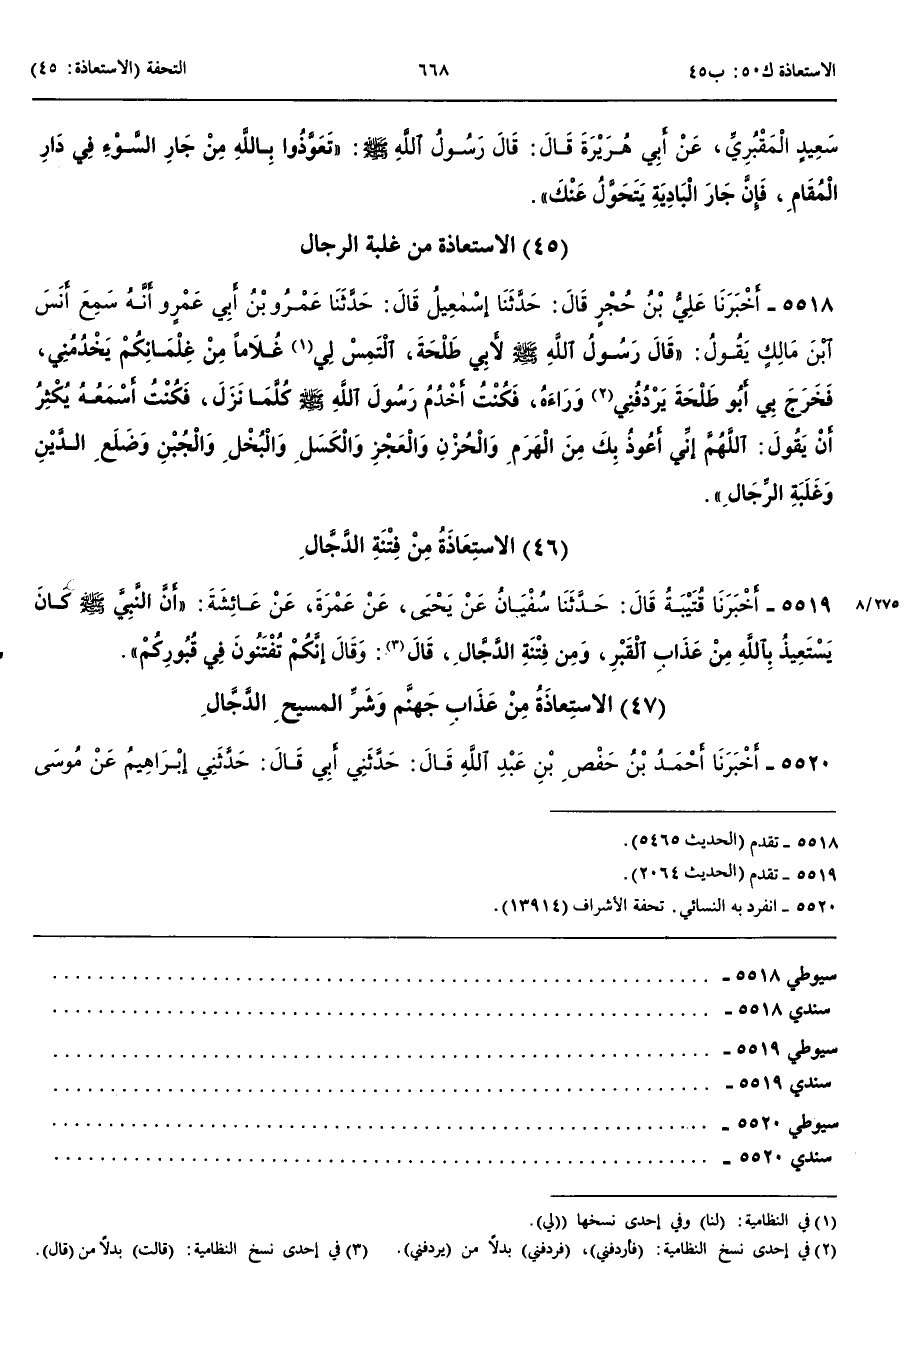 الاستعاذة ك٥٠: ب٤٥ ٦٦٨ التحفة (الاستعاذة: ٤٥)
سَعِيدٍ الْمَقْبُرِيِّ، عَنْ أَبِي هُرَيْرَةَ قَالَ: قَالَ رَسُولُ ٱللَّهِ ﷺ: «تَعَوَّذُوا بِاللَّهِ مِنْ جَارِ السَّوْءِ فِي دَارِ
الْمُقَامِ، فَإِنَّ جَارَ الْبَادِيَةِ يَتَحَوَّلُ عَنْكَ».
(٤٥) الاستعاذة من غلبة الرجال
٥٥١٨ ـ أَخْبَرَنَا عَلِيُّ بْنُ حُجْرٍ قَالَ: حَدَّثَنَا إِسْمٰعِيلُ قَالَ: حَدَّثَنَا عَمْرُو بْنُ أَبِي عَمْرٍو أَنَّهُ سَمِعَ أَنَسَ
ٱبْنَ مَالِكٍ يَقُولُ: «قَالَ رَسُولُ ٱللَّهِ ﷺ لأَبِي طَلْحَةَ، الْتَمِسْ لِي(١) غُلَاماً مِنْ غِلْمَانِكُمْ يَخْدُمُنِي،
فَخَرَجَ بِي أَبُو طَلْحَةَ يَرْدُفُنِي(٢) وَرَاءَهُ، فَكُنْتُ أَخْدُمُ رَسُولَ ٱللَّهِ ﷺ كُلَّمَا نَزَلَ، فَكُنْتُ أَسْمَعُهُ يُكْثِرُ
أَنْ يَقُولَ: ٱللَّهُمَّ إِنِّي أَعُوذُ بِكَ مِنَ الْهَرَمِ وَالْحُزْنِ وَالْعَجْزِ وَالْكَسَلِ وَالْبُخْلِ وَالْجُبْنِ وَضَلَعِ الدَّيْنِ
وَغَلَبَةِ الرِّجَالِ».
(٤٦) الاستِعَاذَةُ مِنْ فِتْنَةِ الدَّجَّالِ
٥٥١٩ ـ أَخْبَرَنَا قُتَيْبَةُ قَالَ: حَدَّثَنَا سُفْيَانُ عَنْ يَحْيَى، عَنْ عَمْرَةَ، عَنْ عَائِشَةَ: «أَنَّ النَّبِيَّ ﷺ كَانَ ٨/٢٧٥
يَسْتَعِيذُ بِٱللَّهِ مِنْ عَذَابِ ٱلْقَبْرِ، وَمِن فِتْنَةِ الدَّجَّالِ، قَالَ(٣): وَقَالَ إِنَّكُمْ تُفْتَنُونَ فِي قُبُورِكُمْ».
(٤٧) الاستِعاذَةُ مِنْ عَذَابِ جَهنَّم وَشَرِّ المسيحِ الدَّجَّالِ
٥٥٢٠ ـ أَخْبَرَنَا أَحْمَدُ بْنُ حَفْصِ بْنِ عَبْدِ ٱللَّهِ قَالَ: حَدَّثَنِي أَبِي قَالَ: حَدَّثَنِي إِبْرَاهِيمُ عَنْ مُوسَى
٥٥١٨ ـ تقدم (الحديث ٥٤٦٥).
٥٥١٩ ـ تقدم (الحديث ٢٠٦٤).
٥٥٢٠ ـ انفرد به النسائي. تحفة الأشراف (١٣٩١٤).
سيوطي ٥٥١٨ ـ ................................................
سندي ٥٥١٨ ـ ................................................
سيوطي ٥٥١٩ ـ ................................................
سندي ٥٥١٩ ـ ................................................
سيوطي ٥٥٢٠ ـ ................................................
سندي ٥٥٢٠ ـ ................................................
(١) في النظامية: (لنا) وفي إحدى نسخها ((لي).
(٢) في إحدى نسخ النظامية: (فأردفني)، (فردفني) بدلاً من (يردفني). (٣) في إحدى نسخ النظامية: (قالت) بدلاً من (قال).